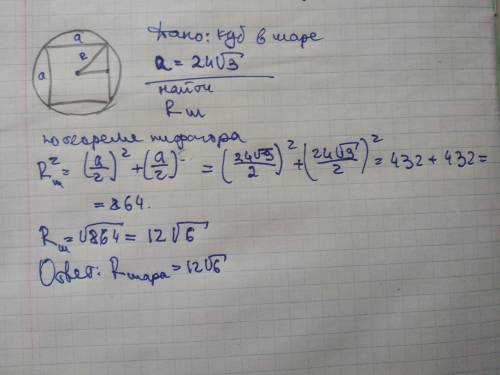 a
a
R
Дано: куб в шаре
a = 24√3
найти
Rш
по теореме пифагора
Rш² = (a/2)² + (a/2)² = (24√3/2)² + (24√3/2)² = 432 + 432 =
= 864.
Rш = √864 = 12√6
Ответ: Rшара = 12√6